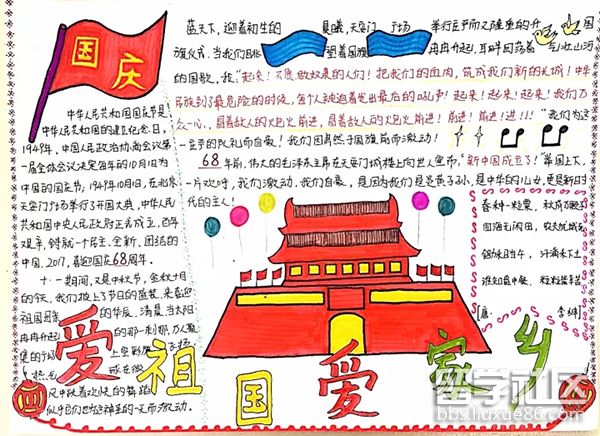 国庆
中华人民共和国国庆节是
中华人民共和国的建立纪念日,
1949年,中国人民政治协商会议第
一届全体会议决定每年的10月1日为
中国的国庆节,1949年10月1日,在北京
天安门广场举行了开国大典,中华人民
共和国中央人民政府正式成立,百年
艰辛,铸就一个民主、全新、团结的
中国,2017,喜迎国庆68周年。
十一期间,又是中秋节,金秋十月
的今天,我们披上了节日的盛装,来喜迎
祖国母亲的华辰,清晨,当太阳
冉冉升起的那一刹那,万人聚
集的
蓝天下,迎着初生的晨曦,天安门广场举行庄严而又隆重的升国
旗仪式,当我们目睹望着国旗冉冉升起,耳畔回荡着气壮山河
的国歌,我"起来!不愿做奴隶的人们!把我们的血肉,筑成我们新的长城!中华
民族到了最危险的时候,每个人被迫着发出最后的吼声!起来!起来!起来!我们万
众一心,冒着敌人的炮火前进,冒着敌人的炮火前进!前进!前进!进!!"我们为这
一庄严的队列而自豪!我们因肃然于国旗前而激动!
68年前,伟大的毛泽东主席在天安门城楼上向世人宣布,"新中国成立了!"举国上下,
一片欢呼,我们激动,我们自豪,是因为我们是炎黄子孙,是中华的儿女,更是新时
代的主人!
春种一粒粟,秋成万颗子
四海无闲田,农夫犹饿死
锄禾日当午,汗滴禾下土
谁知盘中餐,粒粒皆辛苦
[唐] 李绅
爱祖国爱家乡
留学社区
bbs.liuxue86.com